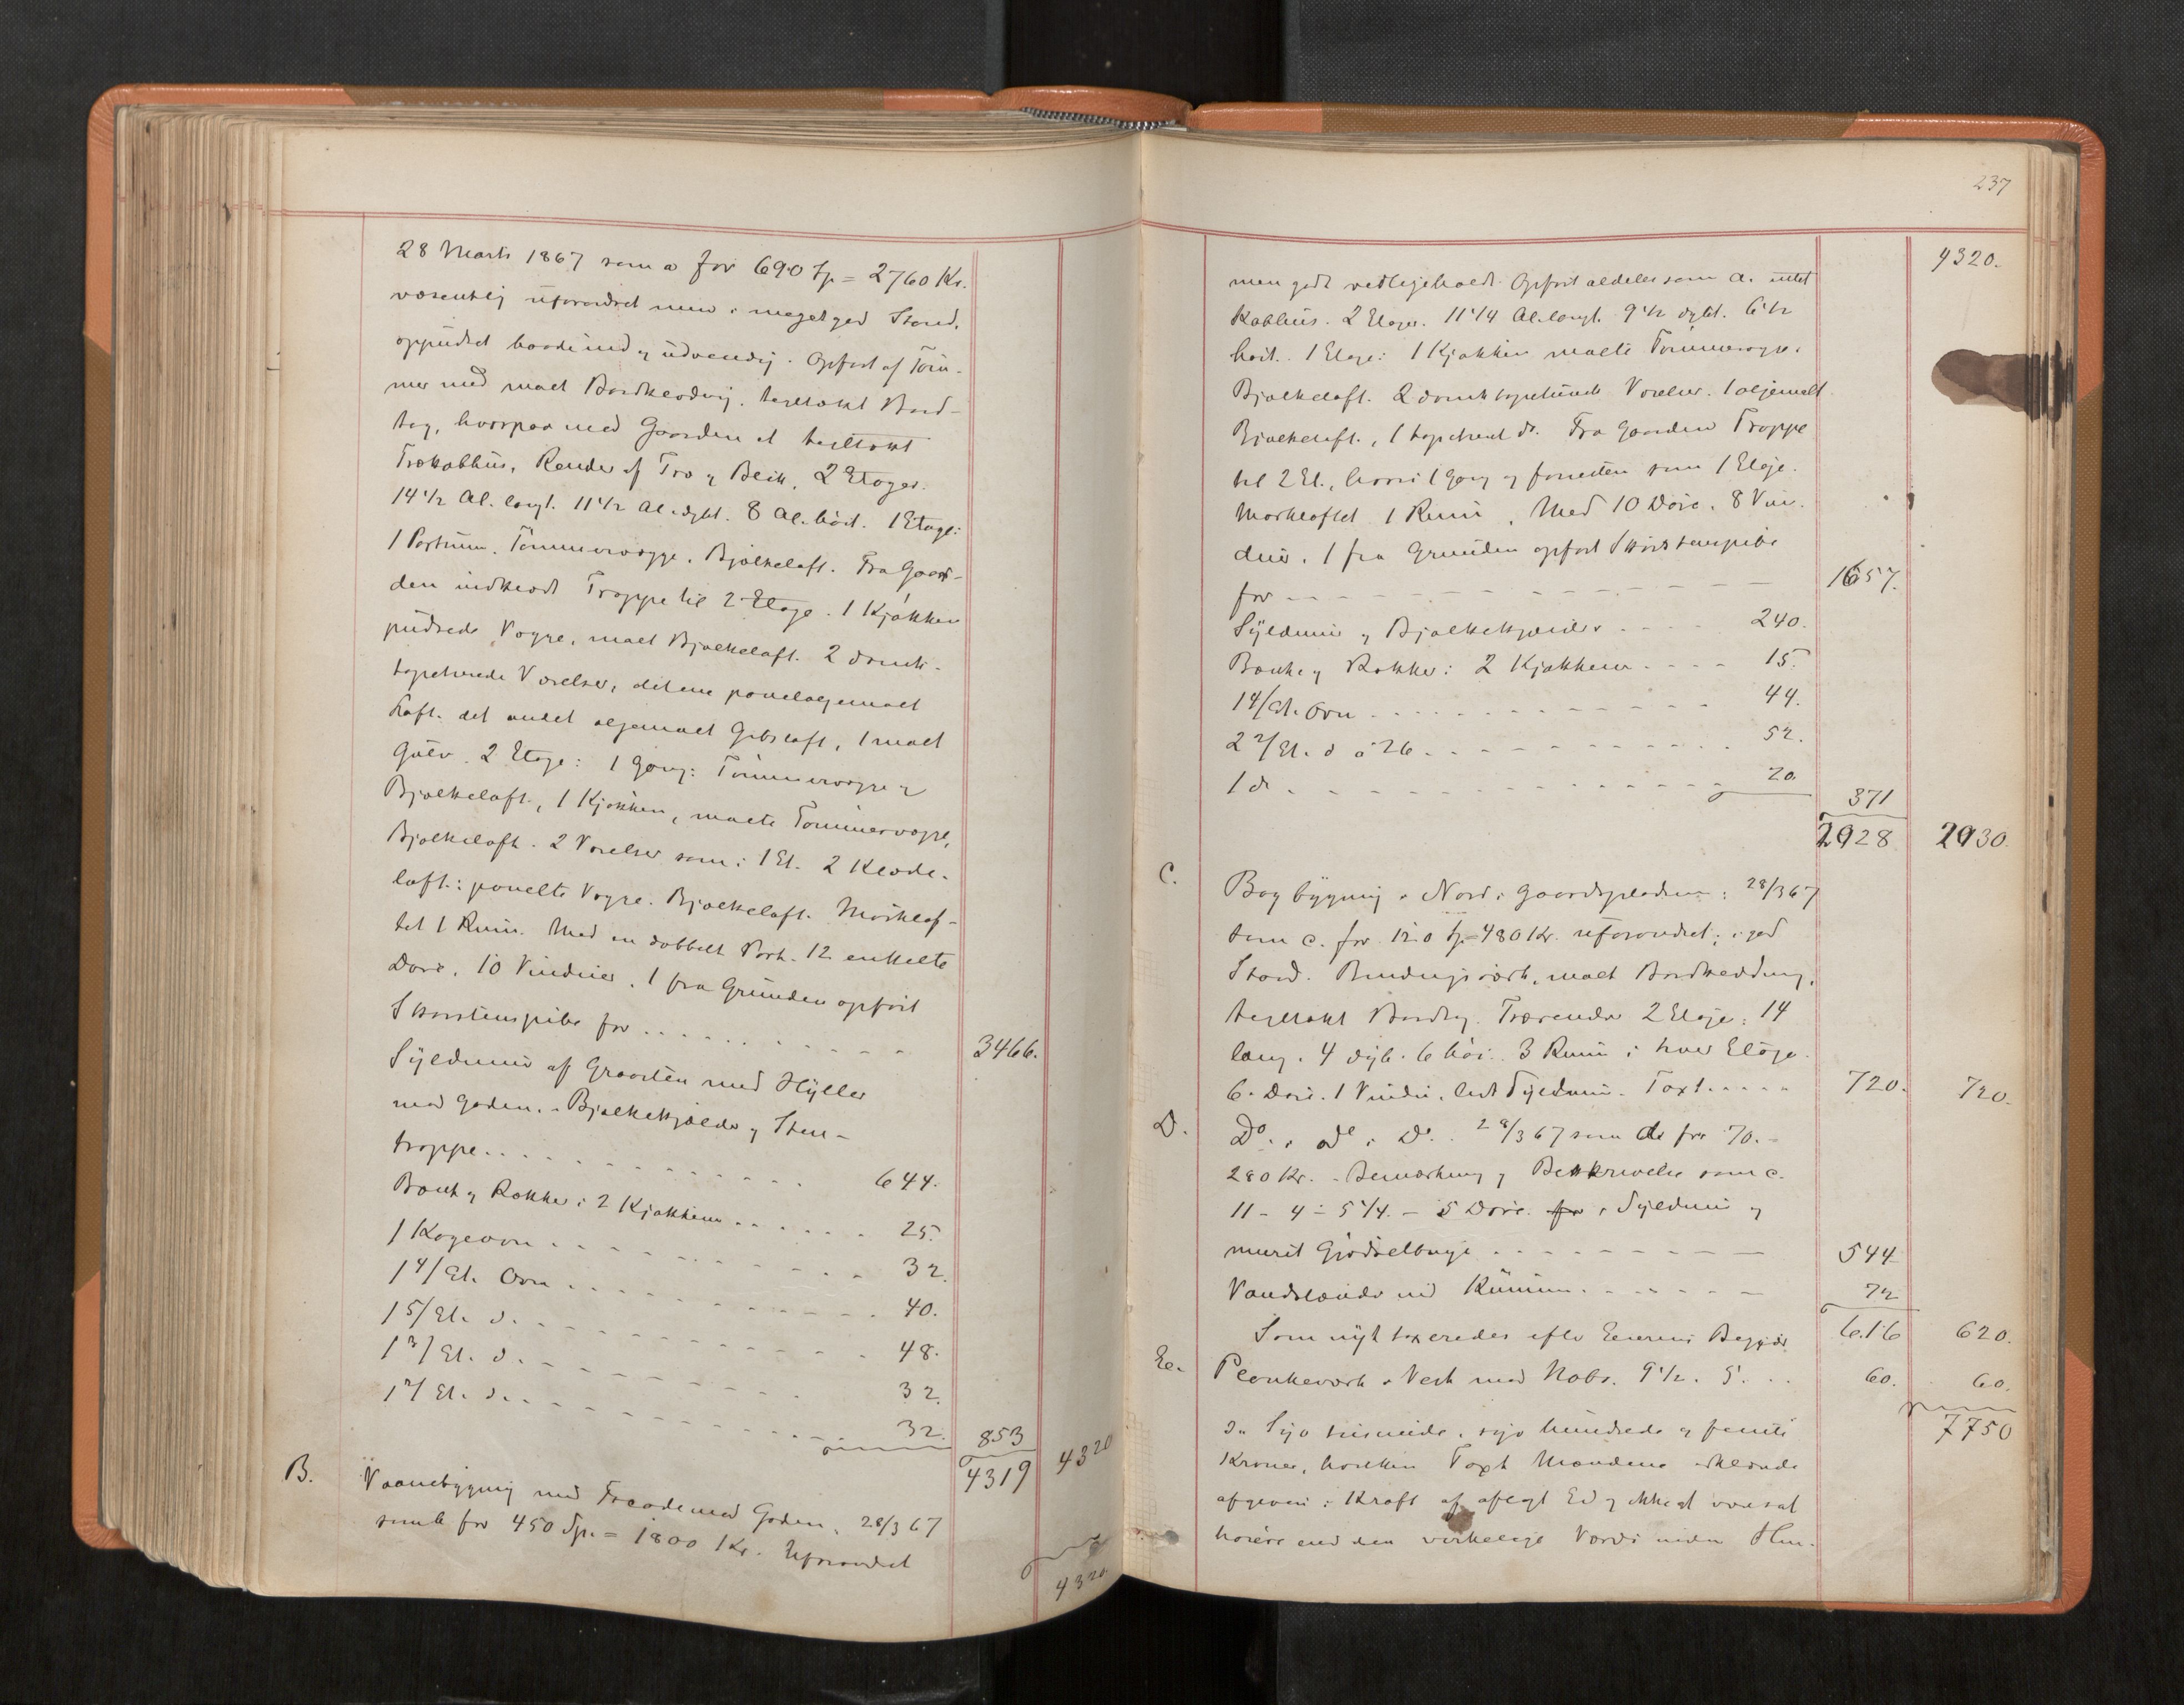 28 Marts 1867 som a for 690 Sp = 2760 Kr.
væsentlig uforandret men i meget god Stand,
oppudset baade ind og udvendig. Opført af Töm-
mer med malt Bordklædning. tegltækt Bord-
tag, hvorpaa mod Gaarden et tegltækt
Trækobhus, Render af Træ og Blik, 2 Etager.
14 1/2 Al. langt. 11 1/2 Al. dybt. 8 Al. höit. 1 Etage:
1 Portrum. Tömmervægge. Bjælkeloft. Fra Gaar-
den indklædt Trappe til 2 Etage. 1 Kjökken
pudsede Vægge, malt Bjælkeloft. 2 damk-
tapetserede Værelser, det ene paneloljemalt
Loft. det andet oljemalt Gibsloft, 1 malt
Gulv. 2 Etage: 1 Gang: Tömmervægge og
Bjælkeloft, 1 Kjökken, malte Tömmervægge,
Bjælkeloft. 2 Værelser som i 1 Et. 2 Klæde-
loft: panelte Vægge. Bjælkeloft. Mörklof-
tet 1 Rum. Med en dobbelt Port. 12 enkelte
Döre. 10 Vinduer. 1 fra Grunden opfört
Skorstenspibe for . . . 3466.
Syldmur af Graasten med Hyller
mod Gaden. Bjælkekjælder og Sten-
trappe . . . 644.
Bænk og Rækker i 2 Kjökkener . . . 25.
1 Kogeovn . . . 32.
1 4/Et. Ovn . . . 40.
1 5/Et. d. . . . 48.
1 3/Et. d. . . . 32.
1 2/Et. d. . . . 32. 853
4319 4320
B. Vaanebygning med Facade mod Gaden, 28/3 67
som b for 450 Sp. = 1800 Kr. Uforandret
4320.
237
4320.
men godt vedligeholdt. Opfört aldeles som a. intet
Kobhus. 2 Etager. 11 1/4 Al. langt. 9 1/2 dybt. 6 1/2
höit. 1 Etage: 1 Kjökken malte Tömmervægge.
Bjælkeloft. 2 damktapetserede Værelser. 1 oljemalt
Bjælkeloft, 1 tapetseret do. Fra Gaarden Trappe
til 2 Et., hvori 1 Gang og foruden som 1 Etage.
Mörkloftet 1 Rum. Med 10 Döre. 8 Vin-
duer. 1 fra Grunden opfört Skorstenspibe
for . . . 1657.
Syldmur og Bjælkekjælder . . . 240.
Bænke og Rækker i 2 Kjökkener . . . 15.
1 4/Et. Ovn . . . 44.
2 2/Et. d à 26 . . . 52.
1 do . . . 20
371
2928 2930.
C. Bagbygning i Nord i Gaardspladsen: 28/3 67
som c. for 120 Sp = 480 Kr. uforandret; i god
Stand. Bindingsværk, malt Bordklædning,
tegltækt Bordtag. Trærender 2 Etage: 14
lang. 4 dyb. 6 höi. 3 Rum i hver Etage.
6 Döre. 1 Vindu. lidt Syldmur. Taxt . . . 720. 720.
D. Do. i do i Do. 28/3 67 som d for 70. =
280 Kr. - Bemærkning og Beskrivelse som c.
11 - 4 - 5 1/4. - 5 Döre. for Syldmur og
muret Gjödselbinge . . . 544
Vandslænde ved Rummen . . . 72
Som nyt taxeredes efter Eierens Begjær 616 620.
Ee. Plankeværk i Vest mod Nabo. 9 1/2. 5. . . 60. 60.
7750
d. Syv tusinde, syv hundrede og femti
Kroner, hvilken Taxt Mændene erklærede
afgiven i Kraft af aflagt Ed og ikke at være sat
höiere end den virkelige Værdi uden Hen-